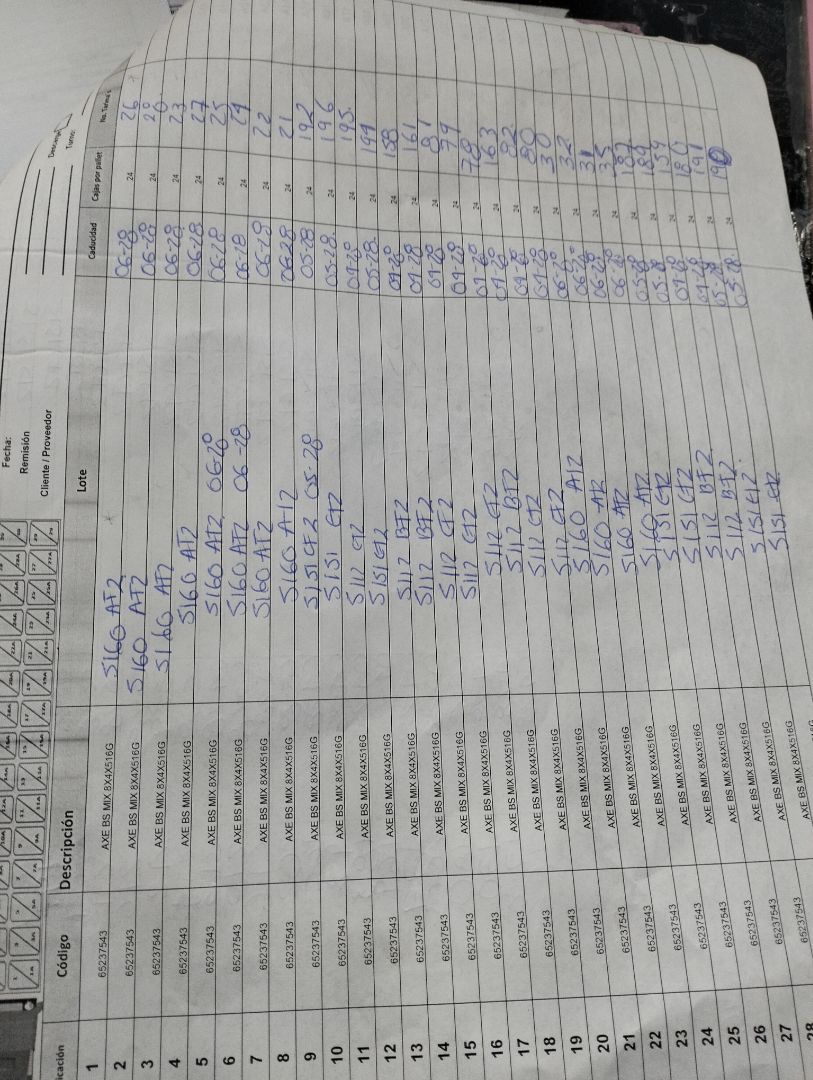 Fecha:
Remisión
Cliente / Proveedor
Turno:
Código Descripción Lote Caducidad Cajas por pallet No. Tarima's
1 65237543 AXE BS MIX 8X4X516G 5160 AT2 06-28 24 26
2 65237543 AXE BS MIX 8X4X516G 5160 AT2 06-28 24 20
3 65237543 AXE BS MIX 8X4X516G 5160 AT2 06-28 24 23
4 65237543 AXE BS MIX 8X4X516G 5160 AT2 06-28 24 27
5 65237543 AXE BS MIX 8X4X516G 5160 AT2 06-28 06-28 24 25
6 65237543 AXE BS MIX 8X4X516G 5160 AT2 06-28 06-28 24 29
7 65237543 AXE BS MIX 8X4X516G 5160 AT2 06-28 24 22
8 65237543 AXE BS MIX 8X4X516G 5160 AT2 06-28 24 21
9 65237543 AXE BS MIX 8X4X516G 5151 CT2 05-28 05-28 24 192
10 65237543 AXE BS MIX 8X4X516G 5151 CT2 05-28 24 196
11 65237543 AXE BS MIX 8X4X516G 5112 CT2 04-28 24 195
12 65237543 AXE BS MIX 8X4X516G 5151 CT2 05-28 24
13 65237543 AXE BS MIX 8X4X516G 5112 BT2 04-28 24 158
14 65237543 AXE BS MIX 8X4X516G 5112 BT2 04-28 24 161
15 65237543 AXE BS MIX 8X4X516G 5112 CT2 04-28 24 81
16 65237543 AXE BS MIX 8X4X516G 5112 CT2 04-28 24 79
17 65237543 AXE BS MIX 8X4X516G 5112 CT2 04-28 24 78
18 65237543 AXE BS MIX 8X4X516G 5112 BT2 04-28 24 163
19 65237543 AXE BS MIX 8X4X516G 5112 CT2 04-28 24 82
20 65237543 AXE BS MIX 8X4X516G 5112 CT2 04-28 24 80
21 65237543 AXE BS MIX 8X4X516G 5160 AT2 06-28 24 30
22 65237543 AXE BS MIX 8X4X516G 5160 AT2 06-28 24 32
23 65237543 AXE BS MIX 8X4X516G 5160 AT2 06-28 24 31
24 65237543 AXE BS MIX 8X4X516G 5160 AT2 06-28 24 35
25 65237543 AXE BS MIX 8X4X516G 5151 CT2 05-28 24 187
26 65237543 AXE BS MIX 8X4X516G 5151 CT2 05-28 24 189
27 65237543 AXE BS MIX 8X4X516G 5112 BT2 04-28 159
28 5112 BT2 04-28 180
5151 CT2 05-28 191
5151 CT2 05-28 190